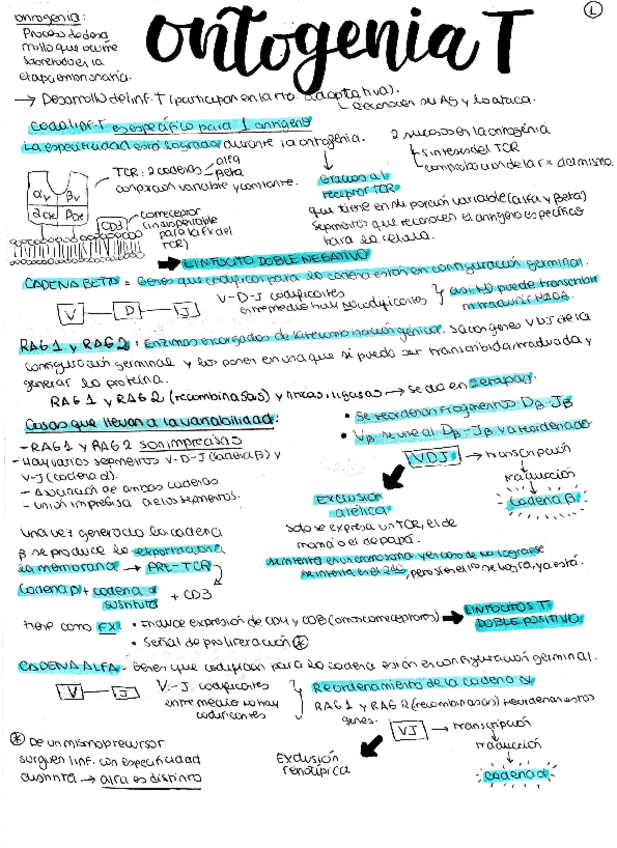 ontogenia T
1
ontogenia:
Proceso de desa
rrollo que ocurre
sobretodo en la
etapa embrionaria.
→ Desarrollo de linf. T (participan en la rta. adaptativa).
reconocen su Ag y lo ataca.
Cada linf. T es específico para 1 antígeno
La especificidad está lograda durante la ontogenia.
2 sucesos en la ontogenia
síntesis del TCR
comprobación de la fx del mismo.
TCR: 2 cadenas
alfa
beta
con porción variable y constante.
Gracias al
receptor TCR
que tiene en su porción variable (alfa y beta)
segmentos que reconocen el antígeno específico
para la célula.
αV βV
CD3
correceptor
(indispensable
para la fx del
TCR)
→ LINFOCITO DOBLE NEGATIVO
CADENA BETA = Genes que codifican para la cadena están en configuración germinal.
V D J
V-D-J codificantes
entremedio hay no codificantes
así NO puede transcribir
ni traducir NADA.
RAG 1 y RAG 2: Enzimas encargadas de la recombinación génica. Sacan genes VDJ de la
configuración germinal y los ponen en una que si pueda ser transcribida, traducida y
generar la proteína.
RAG 1 y RAG 2 (recombinasas) y ligasas → se da en 2 etapas.
Cosas que llevan a la variabilidad:
- RAG 1 y RAG 2 son imprecisas
- Hay varios segmentos V-D-J (cadena β) y
V-J (cadena α).
- Asociación de ambas cadenas
- Unión imprecisa de los segmentos.
• Se reordenan fragmentos Dβ-Jβ
• Vβ se une al Dβ-Jβ ya reordenado
VDJ → transcripción
traducción
Cadena β
Exclusión
alélica
Solo se expresa un TCR, el de
mamá o el de papá.
Se intenta en un cromosoma y en caso de no lograrse
se intenta en el 2do, pero si en el 1ro se logra, ya está.
Una vez generada la cadena
β se produce la exportación a
la membrana → PRE-TCR
Cadena β + cadena α
sustituta
+ CD3
tiene como FX:
• Induce expresión de CD4 y CD8 (correceptores)
→ LINFOCITOS T.
DOBLE POSITIVO.
• Señal de proliferación *
CADENA ALFA - Genes que codifican para la cadena están en configuración germinal.
V J
V-J codificantes
entre medio no hay
codificantes
Reordenamiento de la cadena α
RAG 1 y RAG 2 (recombinasas) reordenan estos
genes.
VJ → transcripción
traducción
cadena α
Exclusión
fenotípica
* De un mismo precursor
surguen linf. con especificidad
distinta → alfa es distinto